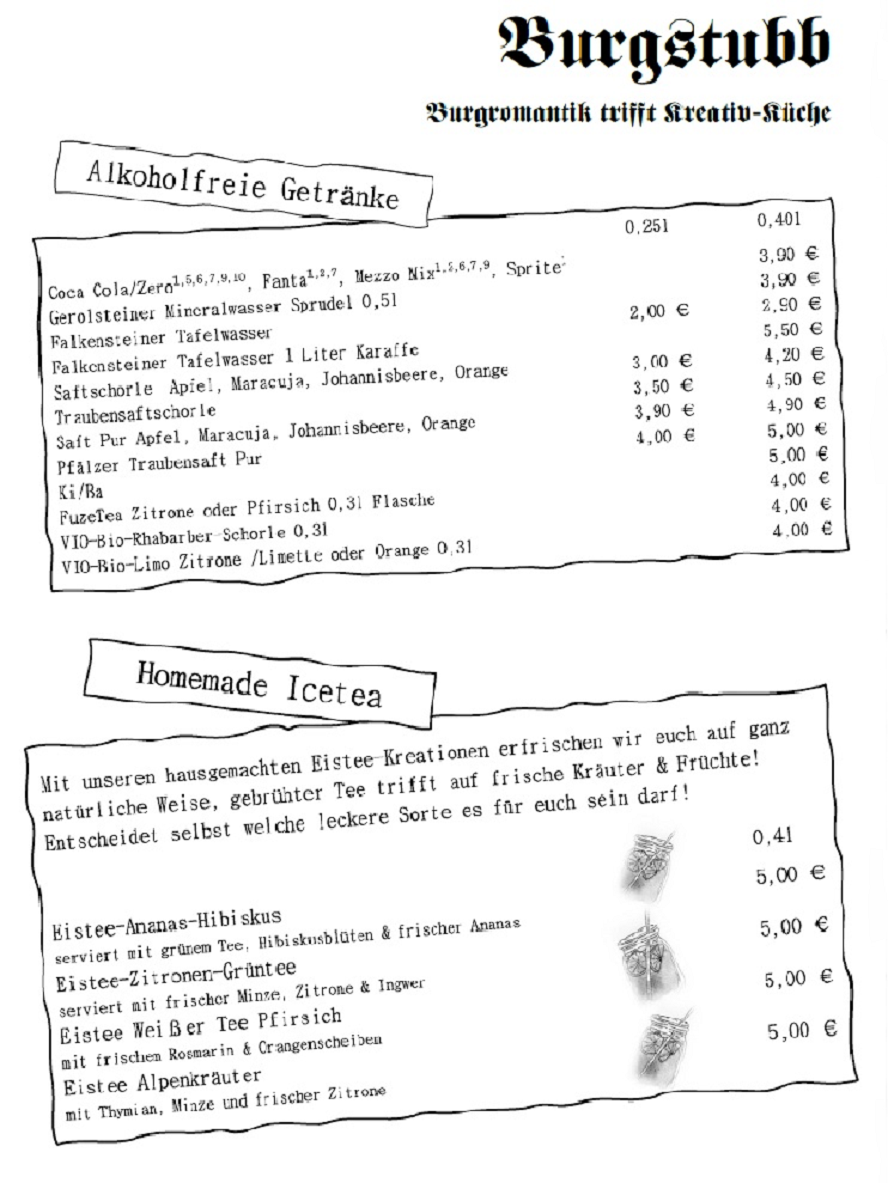 Burgstubb
Burgromantik trifft Kreativ-Küche
Alkoholfreie Getränke
0,25l 0,40l
Coca Cola/Zero1,5,6,7,9,10, Fanta1,2,7, Mezzo Mix1,5,6,7,9, Sprite 3,90 €
Gerolsteiner Mineralwasser Sprudel 0,5l 3,90 €
Falkensteiner Tafelwasser 2,00 € 2,90 €
Falkensteiner Tafelwasser 1 Liter Karaffe 5,50 €
Saftschorle Apfel, Maracuja, Johannisbeere, Orange 3,00 € 4,20 €
Traubensaftschorle 3,50 € 4,50 €
Saft Pur Apfel, Maracuja, Johannisbeere, Orange 3,90 € 4,90 €
Pfälzer Traubensaft Pur 4,00 € 5,00 €
Ki/Ba 5,00 €
FuzeTea Zitrone oder Pfirsich 0,3l Flasche 4,00 €
VIO-Bio-Rhabarber-Schorle 0,3l 4,00 €
VIO-Bio-Limo Zitrone /Limette oder Orange 0,3l 4,00 €
Homemade Icetea
Mit unseren hausgemachten Eistee-Kreationen erfrischen wir euch auf ganz
natürliche Weise, gebrühter Tee trifft auf frische Kräuter & Früchte!
Entscheidet selbst welche leckere Sorte es für euch sein darf!
0,4l
Eistee-Ananas-Hibiskus 5,00 €
serviert mit grünem Tee, Hibiskusblüten & frischer Ananas
Eistee-Zitronen-Grüntee 5,00 €
serviert mit frischer Minze, Zitrone & Ingwer
Eistee Weißer Tee Pfirsich 5,00 €
mit frischen Rosmarin & Orangenscheiben
Eistee Alpenkräuter 5,00 €
mit Thymian, Minze und frischer Zitrone